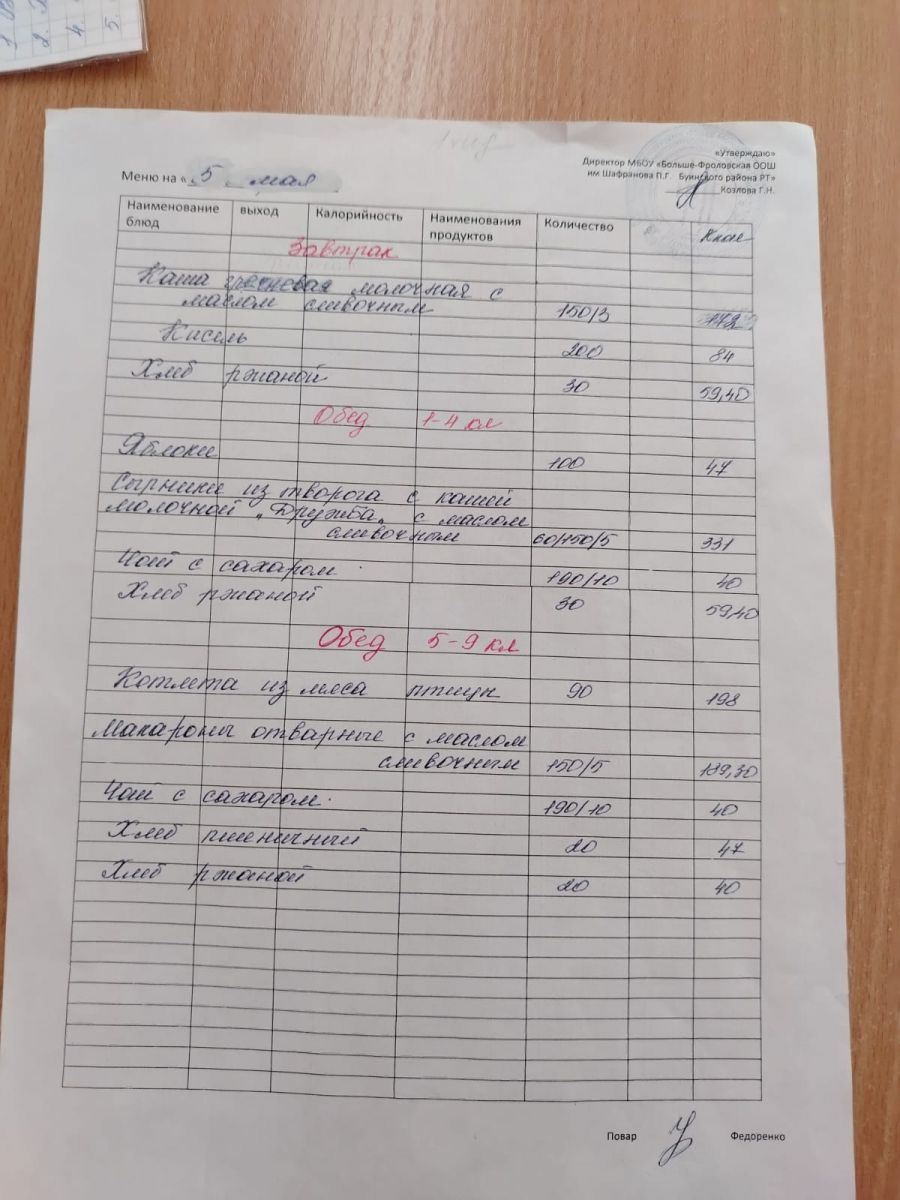 1.
2.
4.
5.
«Утверждаю»
Директор МБОУ «Больше-Фроловская ООШ
им Шафранова П.Г. Буинского района РТ»
Козлова Г.Н.
Меню на « 5 мая
Наименование блюд выход Калорийность Наименования продуктов Количество Ккал
Завтрак
Каша гречневая молочная с
маслом сливочным 150/3 172
Кисель 200 84
Хлеб ржаной 30 59,40
Обед 1-4 кл
Яблоки 100 47
Сырники из творога с кашей
молочной „Дружба„ с маслом
сливочным 60/150/5 331
Чай с сахаром. 190/10 40
Хлеб ржаной 30 59,40
Обед 5-9 кл
Котлета из мяса птицы 90 198
Макароны отварные с маслом
сливочным 150/5 189,30
Чай с сахаром. 190/10 40
Хлеб пшеничный 20 47
Хлеб ржаной 20 40
Повар Федоренко